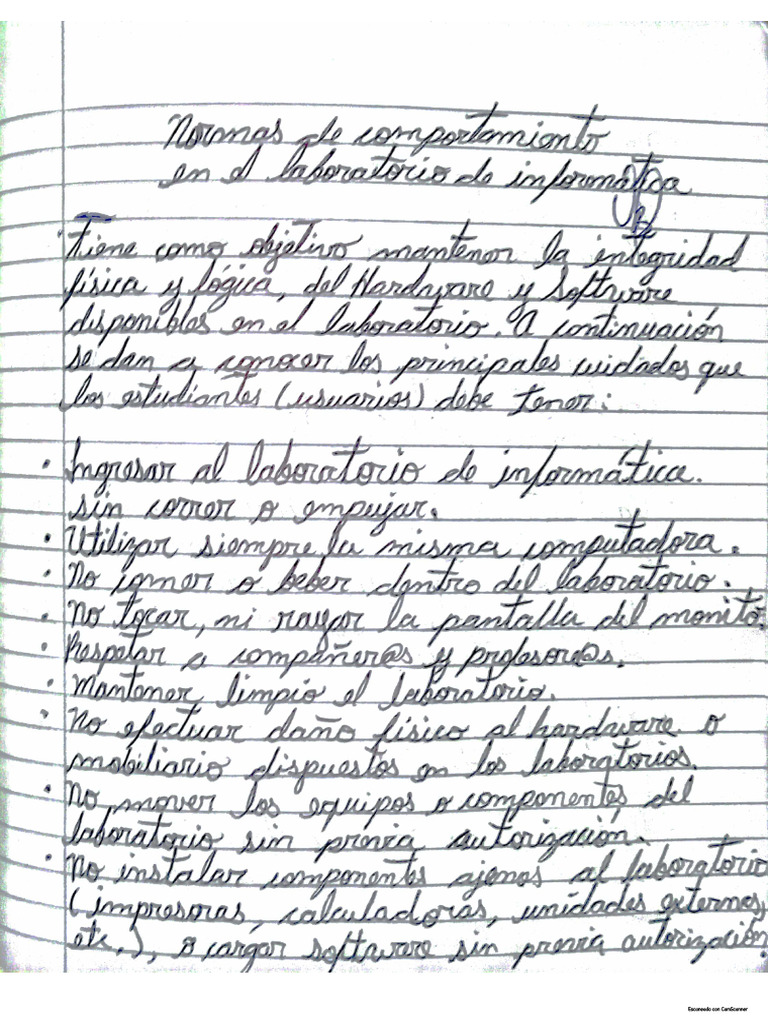 Normas de comportamiento
en el laboratorio de informática
Tiene como objetivo mantener la integridad
física y lógica, del Hardware y Software
disponibles en el laboratorio. A continuación
se dan a conocer los principales cuidados que
los estudiantes (usuarios) debe tener:
• Ingresar al laboratorio de informática.
sin correr o empujar.
• Utilizar siempre la misma computadora.
• No comer o beber dentro del laboratorio.
• No tocar, ni rayar la pantalla del monito.
• Respetar a compañer@s y profesor@s.
• Mantener limpio el laboratorio.
• No efectuar daño físico al hardware o
mobiliario dispuestos en los laboratorios.
• No mover los equipos o componentes del
laboratorio sin previa autorización.
• No instalar componentes ajenos al laboratorio
(impresoras, calculadoras, unidades externas,
etc.), o cargar software sin previa autorización.
Escaneado con CamScanner